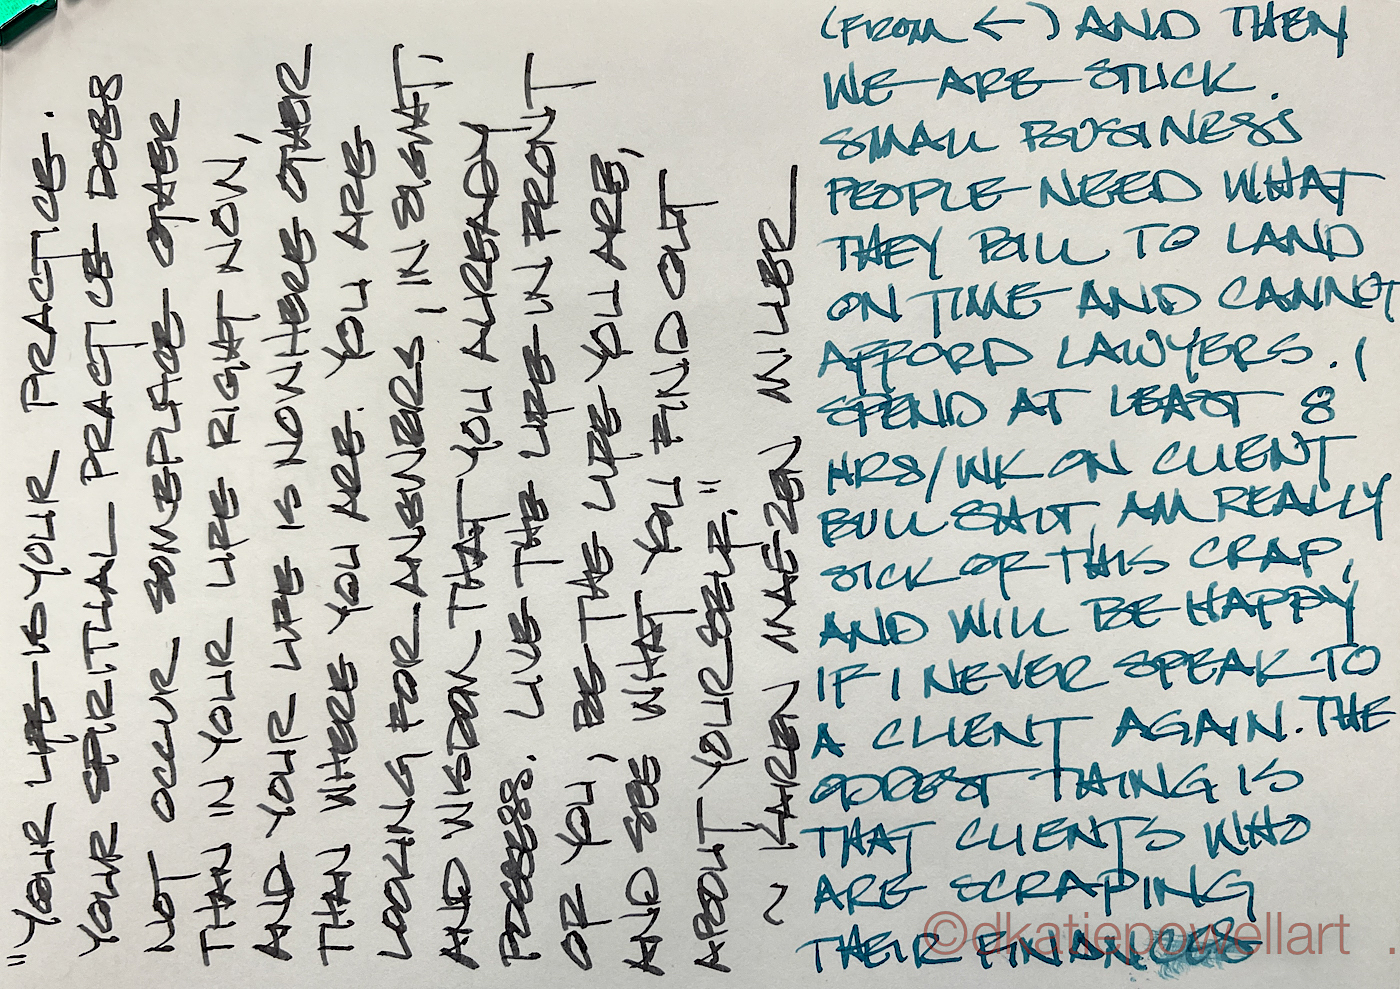 "YOUR LIFE IS YOUR PRACTICE.
YOUR SPIRITUAL PRACTICE DOES
NOT OCCUR SOMEPLACE OTHER
THAN IN YOUR LIFE RIGHT NOW,
AND YOUR LIFE IS NOWHERE OTHER
THAN WHERE YOU ARE. YOU ARE
LOOKING FOR ANSWERS, INSIGHT,
AND WISDOM THAT YOU ALREADY
POSSESS. LIVE THE LIFE IN FRONT
OF YOU, BE THE LIFE YOU ARE,
AND SEE WHAT YOU FIND OUT
ABOUT YOURSELF."
~ KAREN MAEZEN MILLER
(FROM ←) AND THEN
WE ARE STUCK.
SMALL BUSINESS
PEOPLE NEED WHAT
THEY BILL TO LAND
ON TIME AND CANNOT
AFFORD LAWYERS. I
SPEND AT LEAST 8
HRS/WK ON CLIENT
BULLSHIT, AM REALLY
SICK OF THIS CRAP,
AND WILL BE HAPPY
IF I NEVER SPEAK TO
A CLIENT AGAIN. THE
ODDEST THING IS
THAT CLIENTS WHO
ARE SCRAPING
THEIR
©dkatiepowellart .